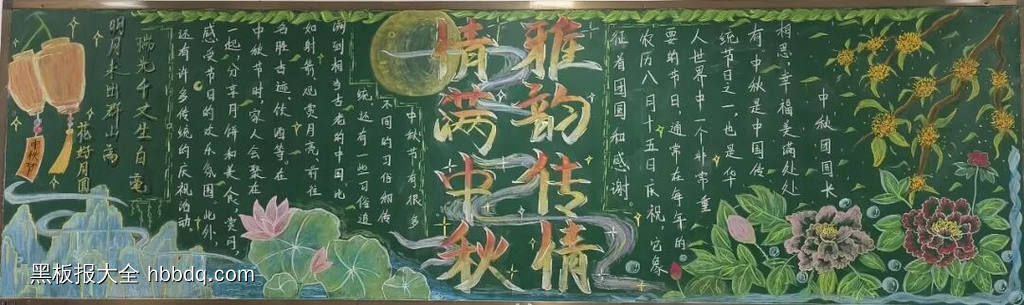 中秋团圆长
相思，幸福美满处处
有。中秋是中国传
统节日之一，也是华
人世界中一个非常重
要的节日，通常在每年的
农历八月十五日庆祝，它象
征着团圆和感谢。
雅韵传情
情满中秋
中秋节有很多
不同的习俗相传
统，还有一些习俗追
溯到相当古老的中国，比
如射箭、观赏月亮、前往
名胜古迹伙
中秋节时，家人会聚在
一起，分享月饼和美食，赏月，
感受节日的欢乐氛围。此外，
还有许多传统的庆祝活动。
瑞光千丈生白毫
明月未出群山高
花好月圆
中秋节
黑板报大全 hbbdq.com